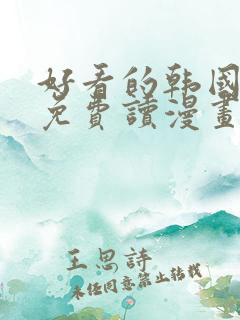 好看的韩国
免費讀漫畫
王思詩
未经同意禁止转载